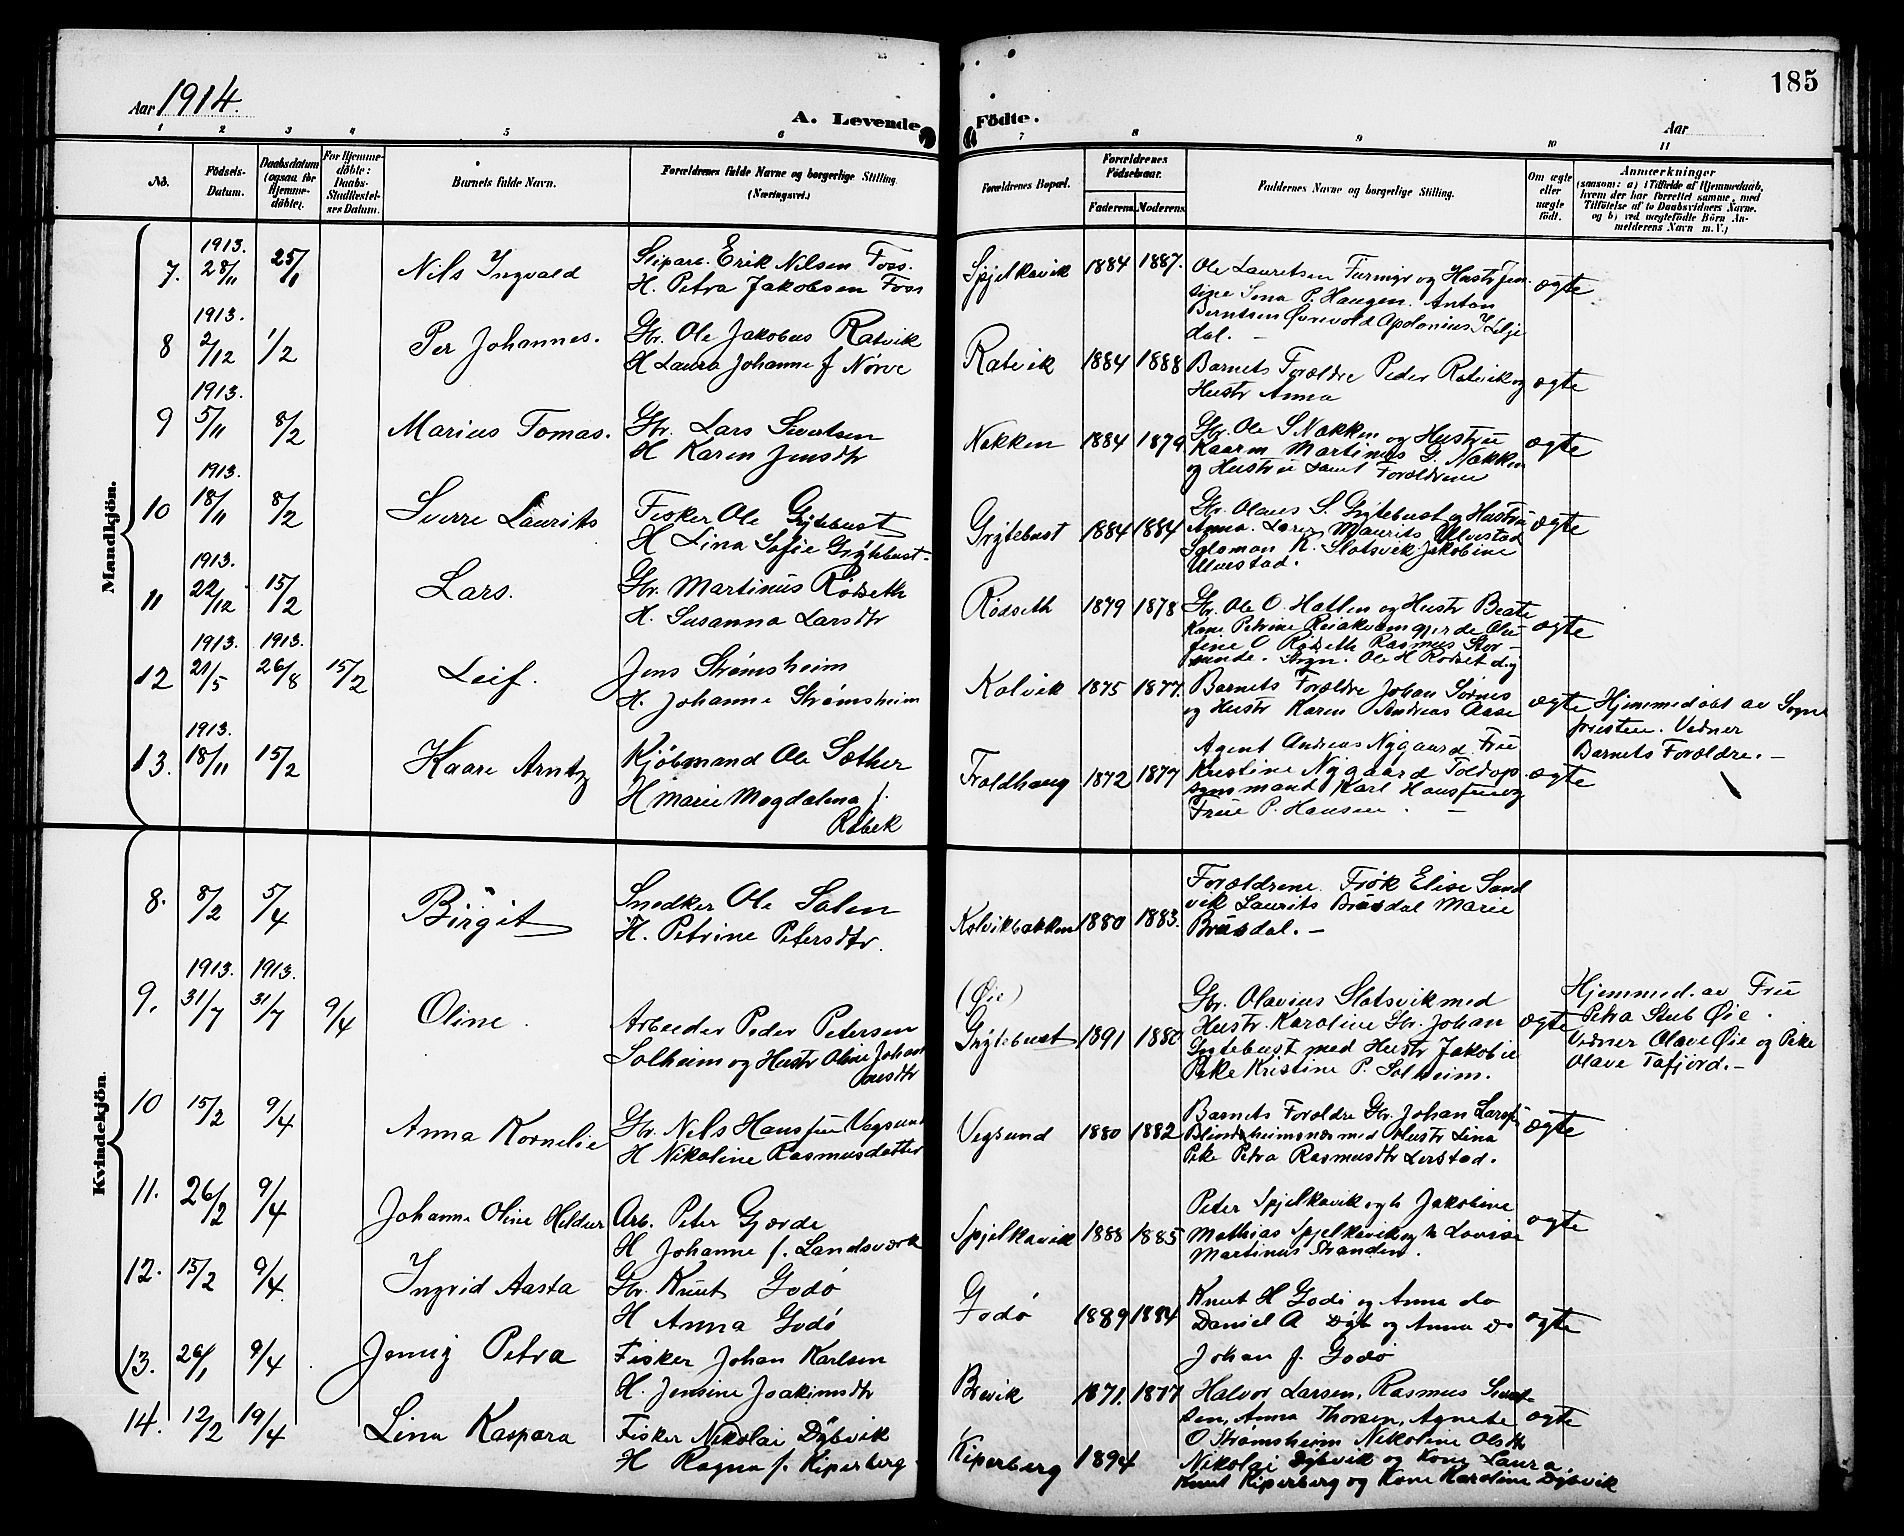 185
Aar 1914.
A. Levende Födte.
Aar
1 2 3 4 5 6 7 8 9 10 11
No.
Födsels-Datum.
Daabsdatum (ogsaa for Hjemmedöbte).
For Hjemmedöbte: Daabs-Stadfæstelses Datum.
Barnets fulde Navn.
Forældrenes fulde Navne og borgerlige Stilling. (Næringsvei.)
Forældrenes Bopæl.
Forældrenes Födselsaar.
Faderens. Moderens.
Faddernes Navne og borgerlige Stilling.
Om ægte eller uægte födt.
Anmærkninger
(saasom: a) i Tilfælde af Hjemmedaab, hvem der har forrettet samme, med Tilföielse af to Daabsvidners Navne, og b) ved uægtefödte Börn Anmelderens Navn m. V.)
Mandkjön.
7. 1913. 28/11 25/1 Nils Ingvald
Erik Nilsen Foss.
H. Petra Jakobsen Foss
Spjelkavik 1884 1887.
Ole Lauritsen Furmyr og Hustr Jen
sine Sena P. Haugen. Anton
Berntsen Ørevold Apolonius Y Lilje
dal. –
ægte
8 1913. 2/12 1/2 Per Johannes.
Gbr. Ole Jakobus Ratvik
H Laura Johanne f Nørve
Ratvik 1884 1888
Barnets Forældre Peder Ratvik og
Hustr Anna
ægte
9 1913. 5/11 8/2 Marius Tomas.
Gbr. Lars Sivertsen
H Karen Jensdtr
Nakken 1884 1879
Gbr. Ole S Nakken og Hustru
Kaarin Martinus G. Nakken
og Hustru samt Forældrene
ægte
10 1913. 18/11 8/2 Sverre Laurits
Fisker Ole Grytebust
H Lina Sofie Grytebust
Grytebust 1884 1884
Gbr. Olaus S. Grytebust og Hustru
Anna. Lærer Maurits Ulvestad
Salomon K. Slatsvik Jakobine
Ulvestad.
ægte
11 1913. 22/12 15/2 Lars.
Gbr. Martinus Rødseth
H. Susanna Larsdtr
Rødseth 1879 1878
Gbr. Ole O. Hatlen og Hustr Beate
Kone Petrine
O Rødseth Rasmus Stor
Ole H Rødset
ægte
12 1913. 21/5 1913. 26/8 15/2 Leif.
Jens Strømsheim
H. Johanne Strømsheim
Kolvik 1875 1877.
Barnets Forældre Johan Sørnes
og Hustr Karen Andreas Aase
ægte
Hjemmedøbt av Sogne
presten. Vidner
Barnets Forældre. –
13. 1913. 18/11 15/2 Kaare Arntz
Kjøbmand Ole Sæther
H Marie Magdalena f.
Røbek
Troldhaug 1872 1877
Agent Andreas Nygaard. Fru
Kristine Nygaard Toldop
synsmand Karl Hansen og
Frue P. Hansen. –
ægte
Kvindekjön.
8. 8/2 5/4 Birgit
Snedker Ole Solen
H. Petrine Petersdtr.
Kolvikbakken 1880 1883.
Forældrene. Frøk Elise Sand
vik Laurits Brusdal Marie
Brusdal. –
9. 1913. 31/7 1913. 31/7 9/4 Oline.
Arbeider Peder Petersen
Solheim og Hustr Oline Johan
nesdtr
(Øie)
Grytebust 1891 1880
Gbr. Olavius Slatsvik med
Hustr. Karoline Gbr. Johan
Grytebust med Hustr Jakobie
Pike Kristine P. Solheim.
ægte
Hjemmed. av Fru
Petra Stub Øie.
Vidner Olave Øie og Pike
Olave Tafjord. –
10 15/2 9/4 Anna Kornelie
Gbr. Nils Hansen Vegsund
H Nikoline Rasmusdatter
Vegsund 1880 1882
Barnets Forældre Gbr. Johan Larsen
Blindheimsnes med Hustr Lina
Pike Petra Rasmusdtr Lerstad.
ægte
11. 26/2 9/4 Johanne Oline Heldur
Arb. Peter Gjærde
H Johanne f. Landsværk
Spjelkavik 1888 1885
Peter Spjelkavik og h Jakobine
Mathias Spjelkavik og h Lovise
Martinus Stranden.
ægte
12. 15/2 9/4 Ingrid Aasta
Gbr. Knut Godø
H Anna Godø
Godø 1889 1884
Knut H Godø og Anna do
Daniel A Dyb og Anna do
Johan J. Godø
ægte
13. 26/1 9/4 Jenny Petra
Fisker Johan Karlsen
H. Jensine Joakimsdtr
Brevik 1871. 1877
Halvor Larsen, Rasmus Sivert
sen, Anna Thorsen, Agnete
O Strømsheim Nikoline Olsdtr
ægte
14. 12/2 19/4 Lina Kaspara
Fisker Nikolai Dybvik
H Ragna f. Kiperberg
Kiperberg 1894
Nikolai Dybvik og Kone Laura.
Knut Kiperberg og Kone Karoline Dybvik